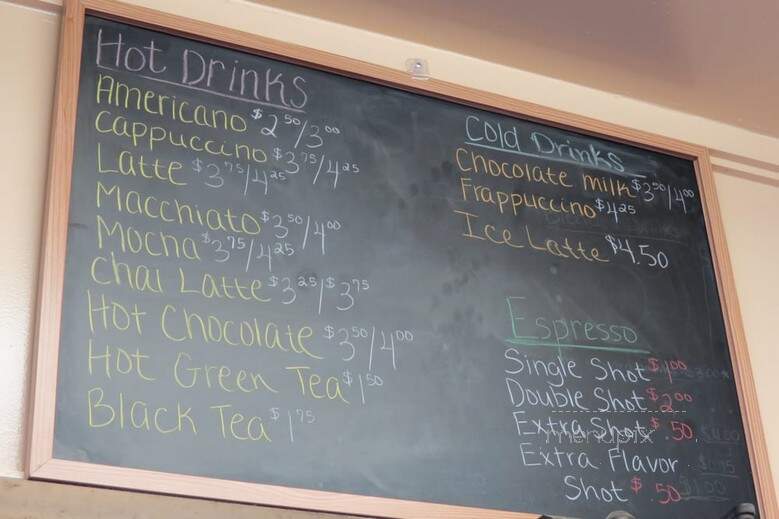 Hot Drinks
Americano $2.50/3.00
Cappuccino $3.75/4.25
Latte $3.75/4.25
Macchiato $3.50/4.00
Mocha $3.75/4.25
Chai Latte $3.25/$3.75
Hot Chocolate $3.50/4.00
Hot Green Tea $1.50
Black Tea $1.75
Cold Drinks
Chocolate milk $3.50/4.00
Frappuccino $4.25
Ice Latte $4.50
Espresso
Single Shot $1.00
Double Shot $2.00
Extra Shot $.50
Extra Flavor
Shot $.50
menupix